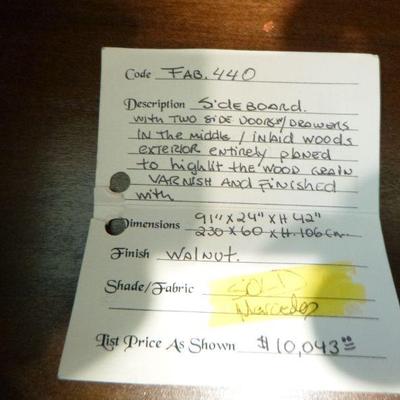 Code FAB. 440
Description SIDEBOARD.
with TWO SIDE DOORS/DRAWERS
IN The middle / INlaid WOODS
EXTERIOR entirely planed
to highlit the WOOD GRAIN
VARNISH AND FINISHED
with
Dimensions 91" x 24" x H 42"
230 x 60 x H. 106 cm.
Finish WalNUT.
Shade/Fabric SOLD
Mercedes
List Price As Shown $10,043.00